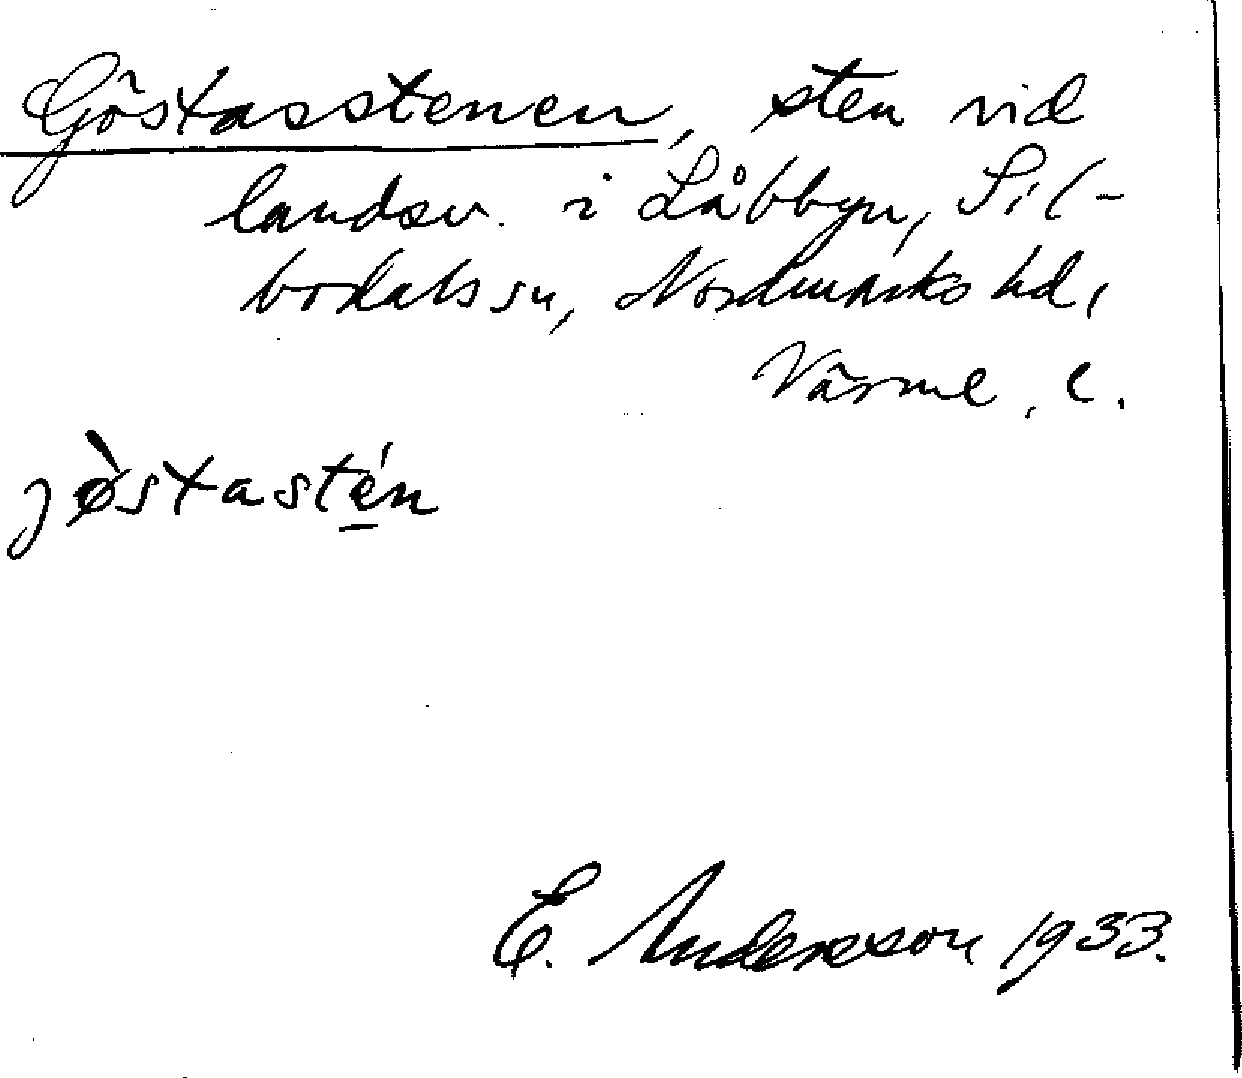 Göstasstenen, sten vid
landsv. i Låbbyn, Sil-
bodals sn, Nordmarks hd,
Värml. l.
jø̀stasté̱n
E. Andersson 1933.